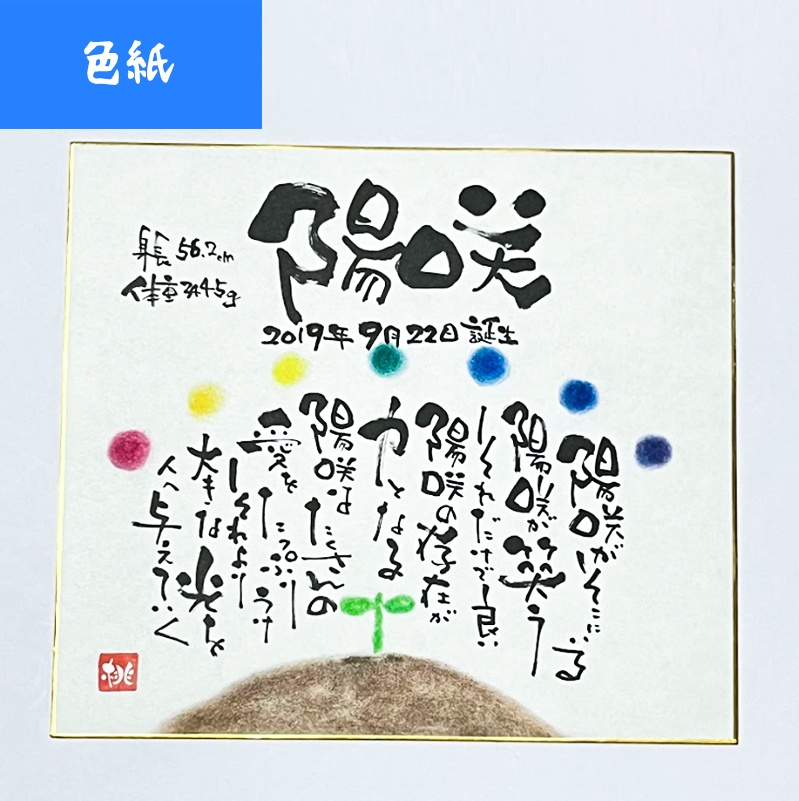 色紙
陽咲
身長 56.2cm
体重 3445g
2019年9月22日 誕生
陽咲がそこにいる
陽咲が笑う
それだけで良い
陽咲の存在が
力となる
陽咲は たくさんの
愛を たっぷりうけ
それより
大きな光を
人へ与えていく
桃